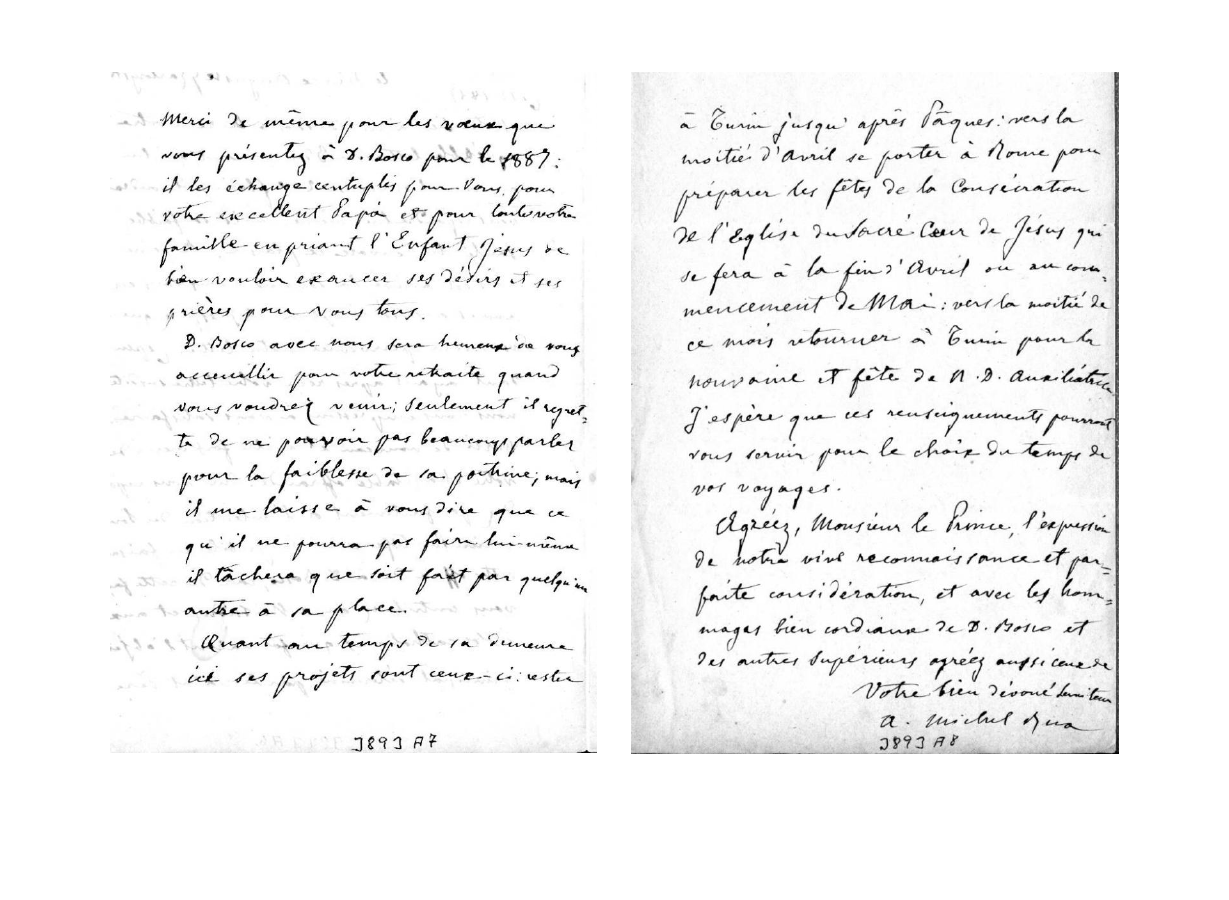 Merci de même pour les vœux que
vous présentez à D. Bosco pour le 1887:
il les échange centuplis pour Vous, pour
votre excellent Papà et pour toute votre
famille en priant l'Enfant Jésus de
bien vouloir exaucer ses désirs et ses
prières pour Vous tous.
D. Bosco avec nous sera heureux de vous
acceuellir pour votre retraite quand
vous voudrez venir; seulement il regret-
te de ne pouvoir pas beaucoup parler
pour la faiblesse de sa poitrine; mais
il me laisse à vous dire que ce
qu'il ne pourra pas faire lui-même
il tâchera que soit fait par quelqu'un
autre à sa place.
Quant au temps de sa demeure
ici ses projets sont ceux-ci: rester
J893 A7
à Turin jusqu'après Pâques: vers la
moitié d'Avril se porter à Rome pour
préparer les fêtes de la Consécration
de l'Eglise du Sacré Cœur de Jésus qui
se fera à la fin d'Avril ou au com-
mencement de Mai: vers la moitié de
ce mois retourner à Turin pour la
nouvaine et fête de N. D. Auxiliatrice
J'espère que ces renseignements pourront
vous servir pour le choix du temps de
vos voyages.
Agréez, Monsieur le Prince, l'expression
de notre vive reconnaissance et par-
faite considération, et avec les hom-
mages bien cordiaux de D. Bosco et
des autres Supérieurs agréez aussi ceux de
Votre bien dévoué serviteur
a. Michel Rua
J893 A8